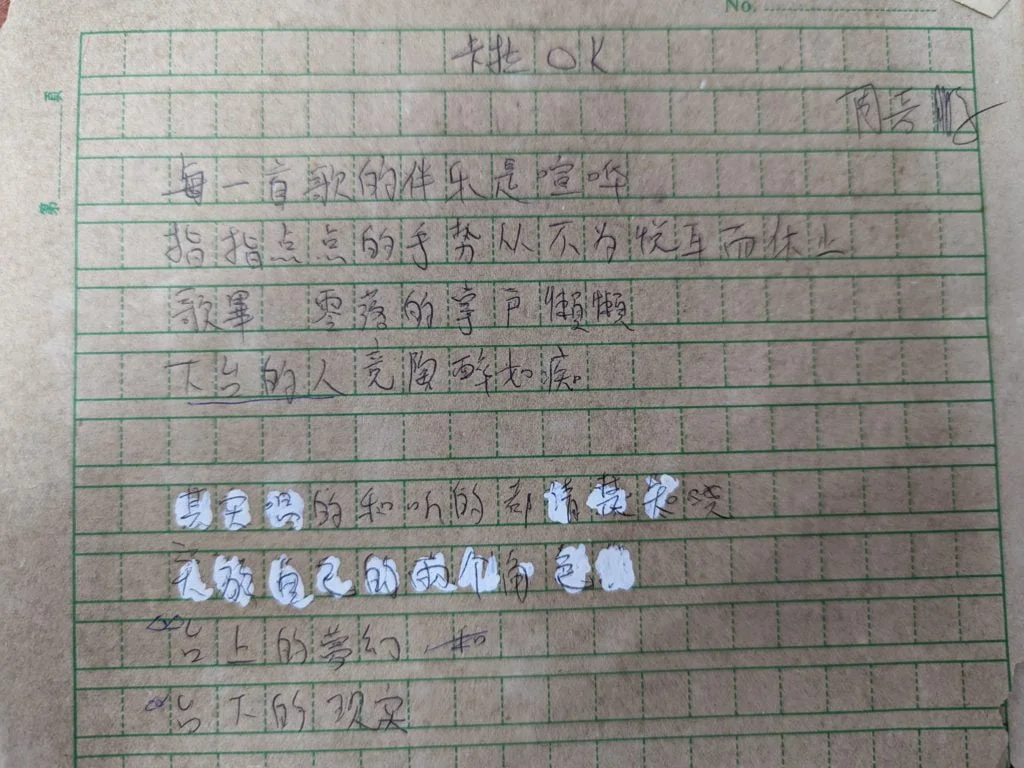 No.
第 页
卡拉OK
周
每一首歌的伴乐是喧哗
指指点点的手势从不为悦耳而休止
歌畢 零落的掌声懒懒
下台的人竟陶醉如痴
其实唱的和听的都清楚知晓
自己的两个角色
台上的夢幻 和
台下的现实